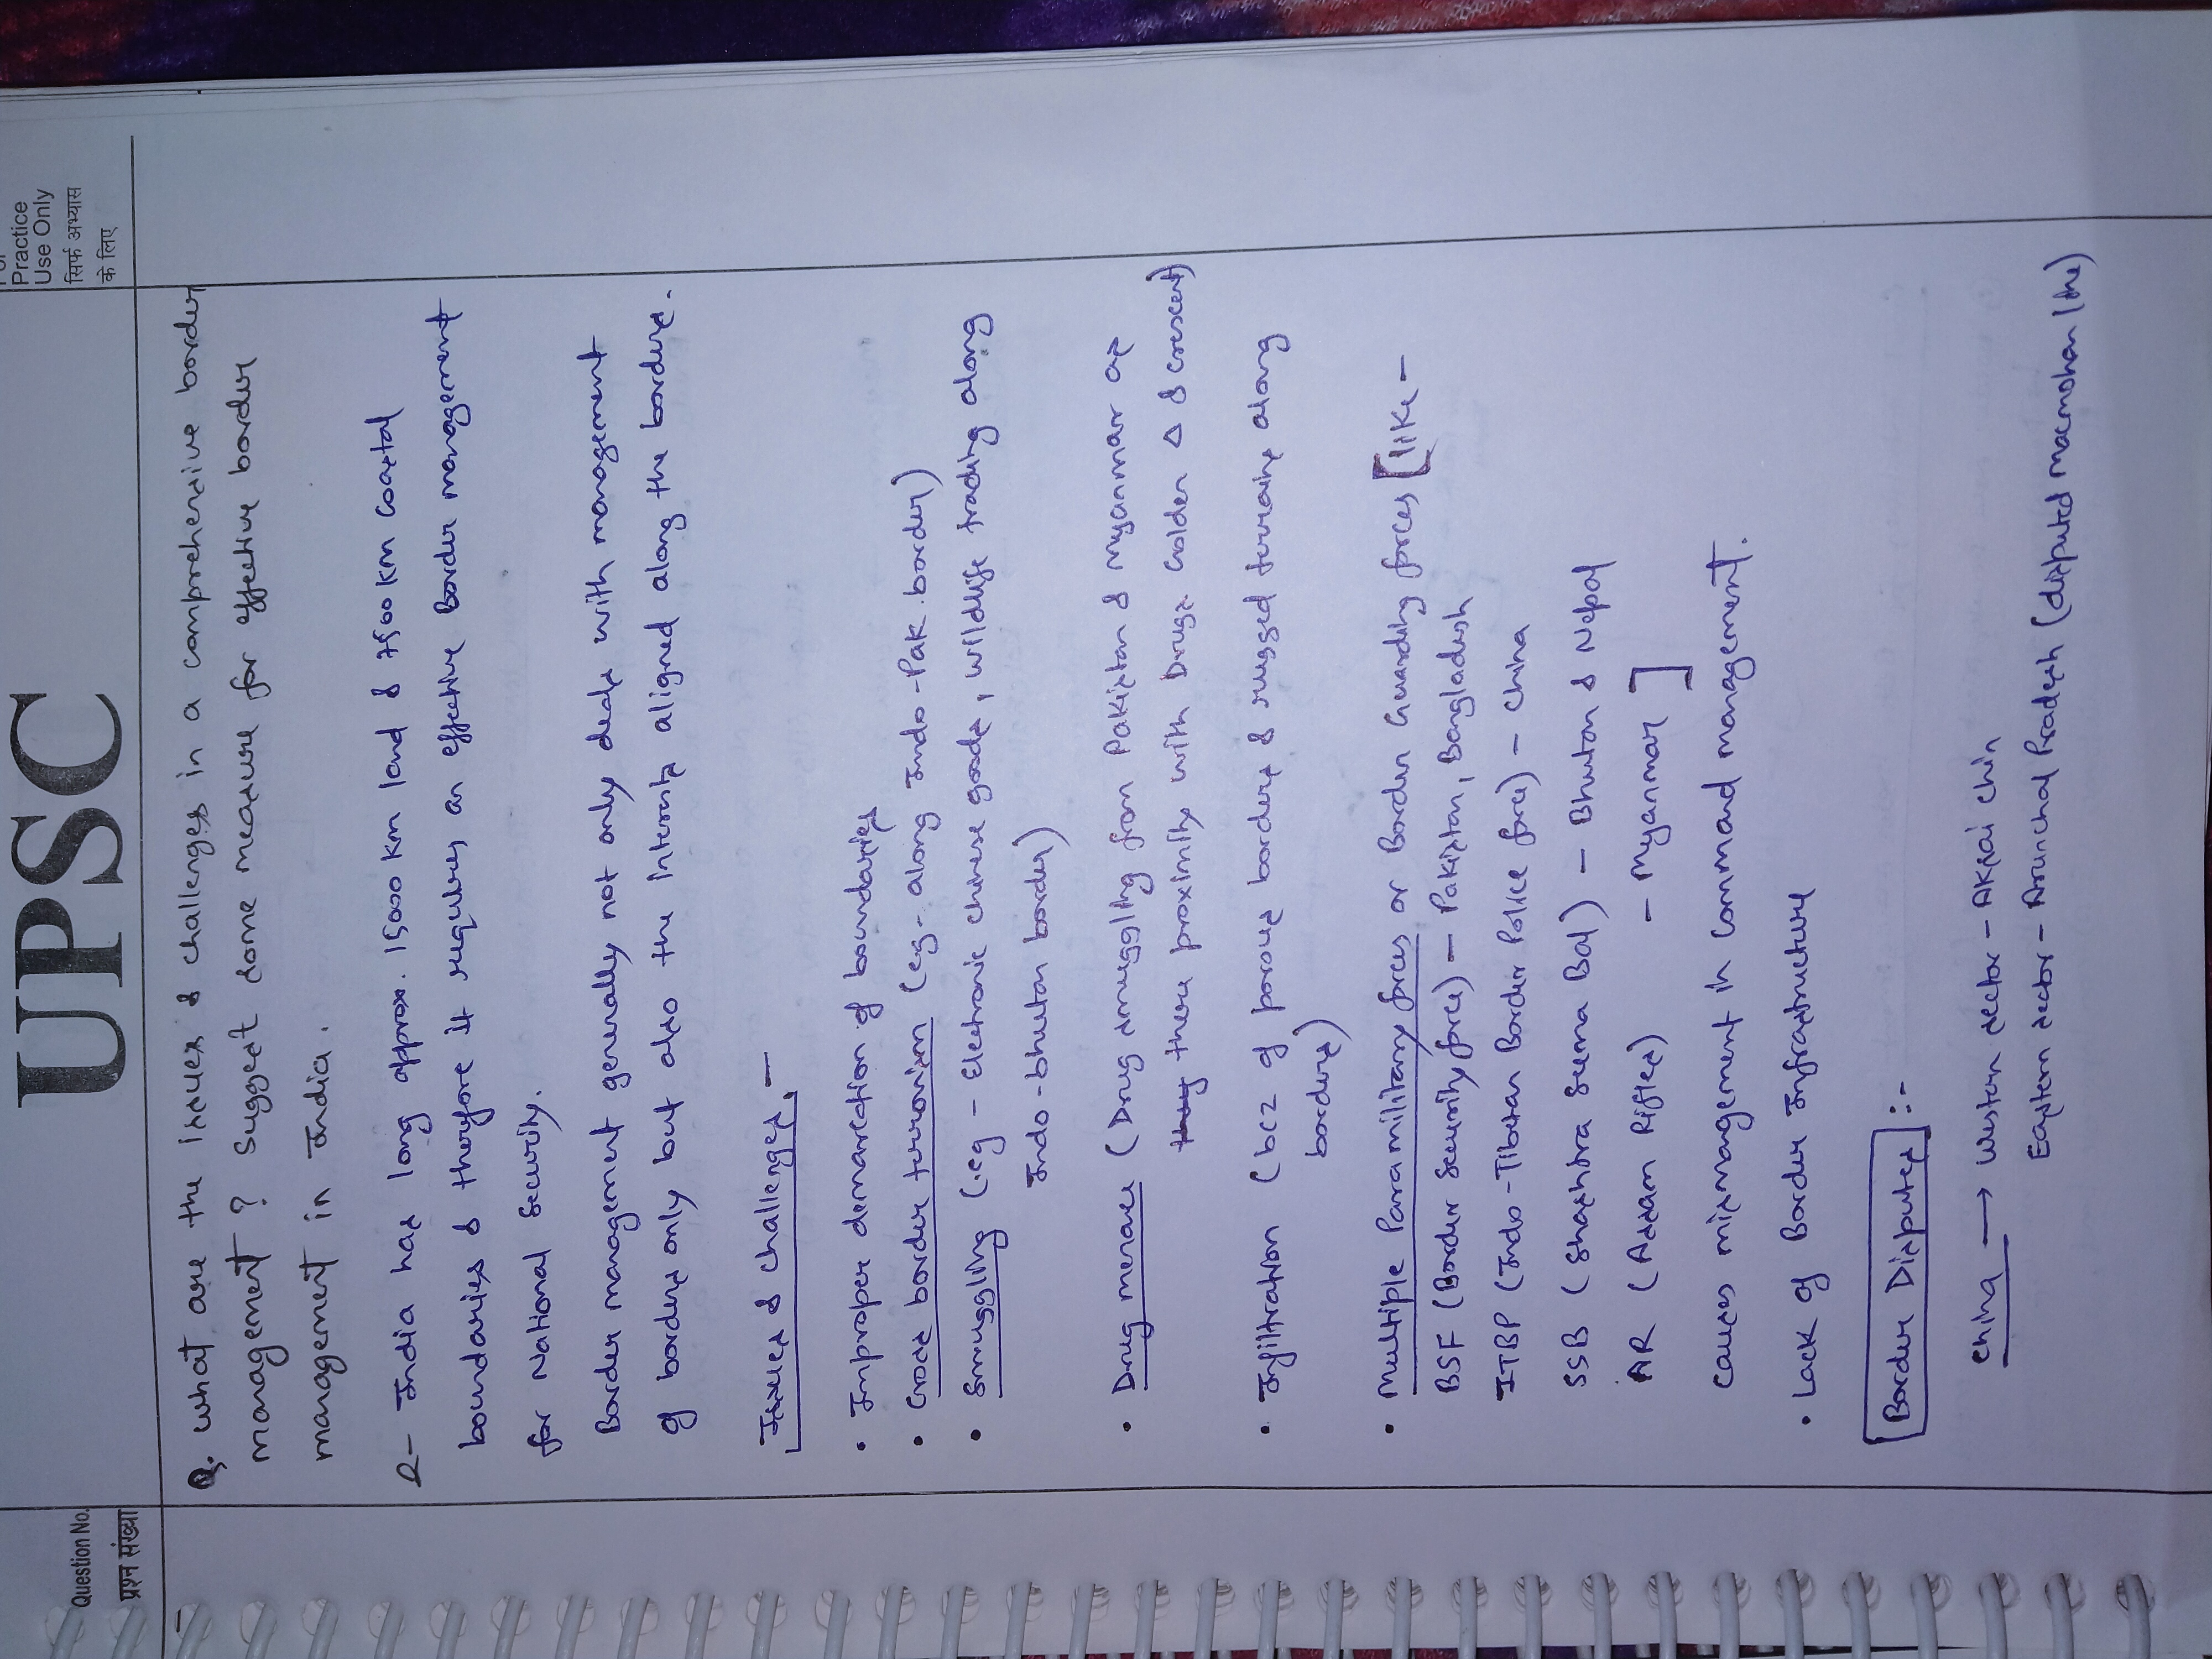 UPSC
Question No.
प्रश्न संख्या
Practice
Use Only
सिर्फ अभ्यास
के लिए
Q. What are the issues & challenges in a comprehensive border
management ? Suggest some measure for effective border
management in India.
- India has long approx. 15000 km land & 7500 km coastal
boundaries & therefore it requires an effective Border management
for National Security.
Border management generally not only deals with management
of borders only but also the interests aligned along the borders.
Issues & challenges, -
• Improper demarcation of boundaries
• Cross border terrorism (eg- along Indo-Pak border)
• Smuggling (eg - Electronic chinese goods, wildlife trading along
Indo-bhutan border)
• Drug menace (Drug smuggling from Pakistan & Myanmar as
their proximity with Drugs Golden Δ & crescent)
• Infiltration (bcz of porous borders & rugged terrains along
borders)
• Multiple Paramilitary forces or Border Guarding forces [like -
BSF (Border Security force) - Pakistan, Bangladesh
ITBP (Indo-Tibetan Border Police force) - China
SSB (Shashtra Seema Bal) - Bhutan & Nepal
AR (Assam Rifles) - Myanmar ]
Causes mismanagement in command management.
• Lack of Border Infrastructure
Border Disputes :-
China → Western sector - Aksai Chin
Eastern sector - Arunchal Pradesh (disputed macmohan line)